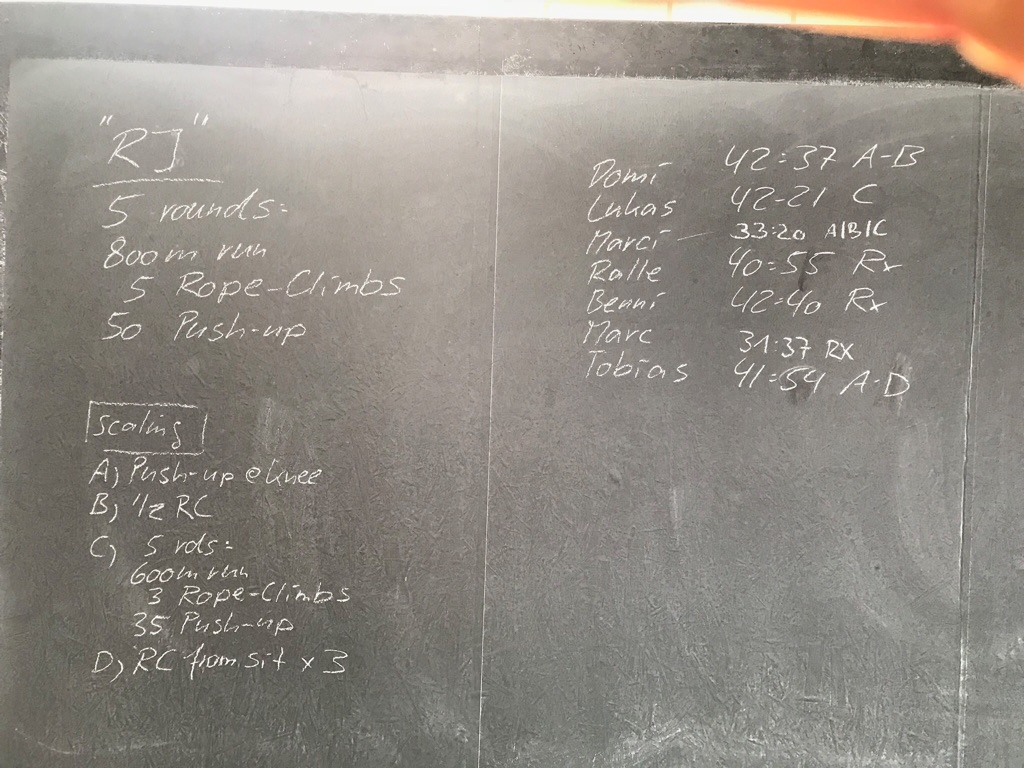 "RJ"
5 rounds:
800m run
5 Rope-Climbs
50 Push-up
scaling
A) Push-up @ knee
B) 1/2 RC
C) 5 rds:
600m run
3 Rope-Climbs
35 Push-up
D) RC from sit x 3
Domi 42:37 A-B
Lukas 42-21 C
Marci - 33:20 A/B/C
Ralle 40:55 Rx
Benni 42:40 Rx
Marc 31:37 RX
Tobias 41:54 A-D